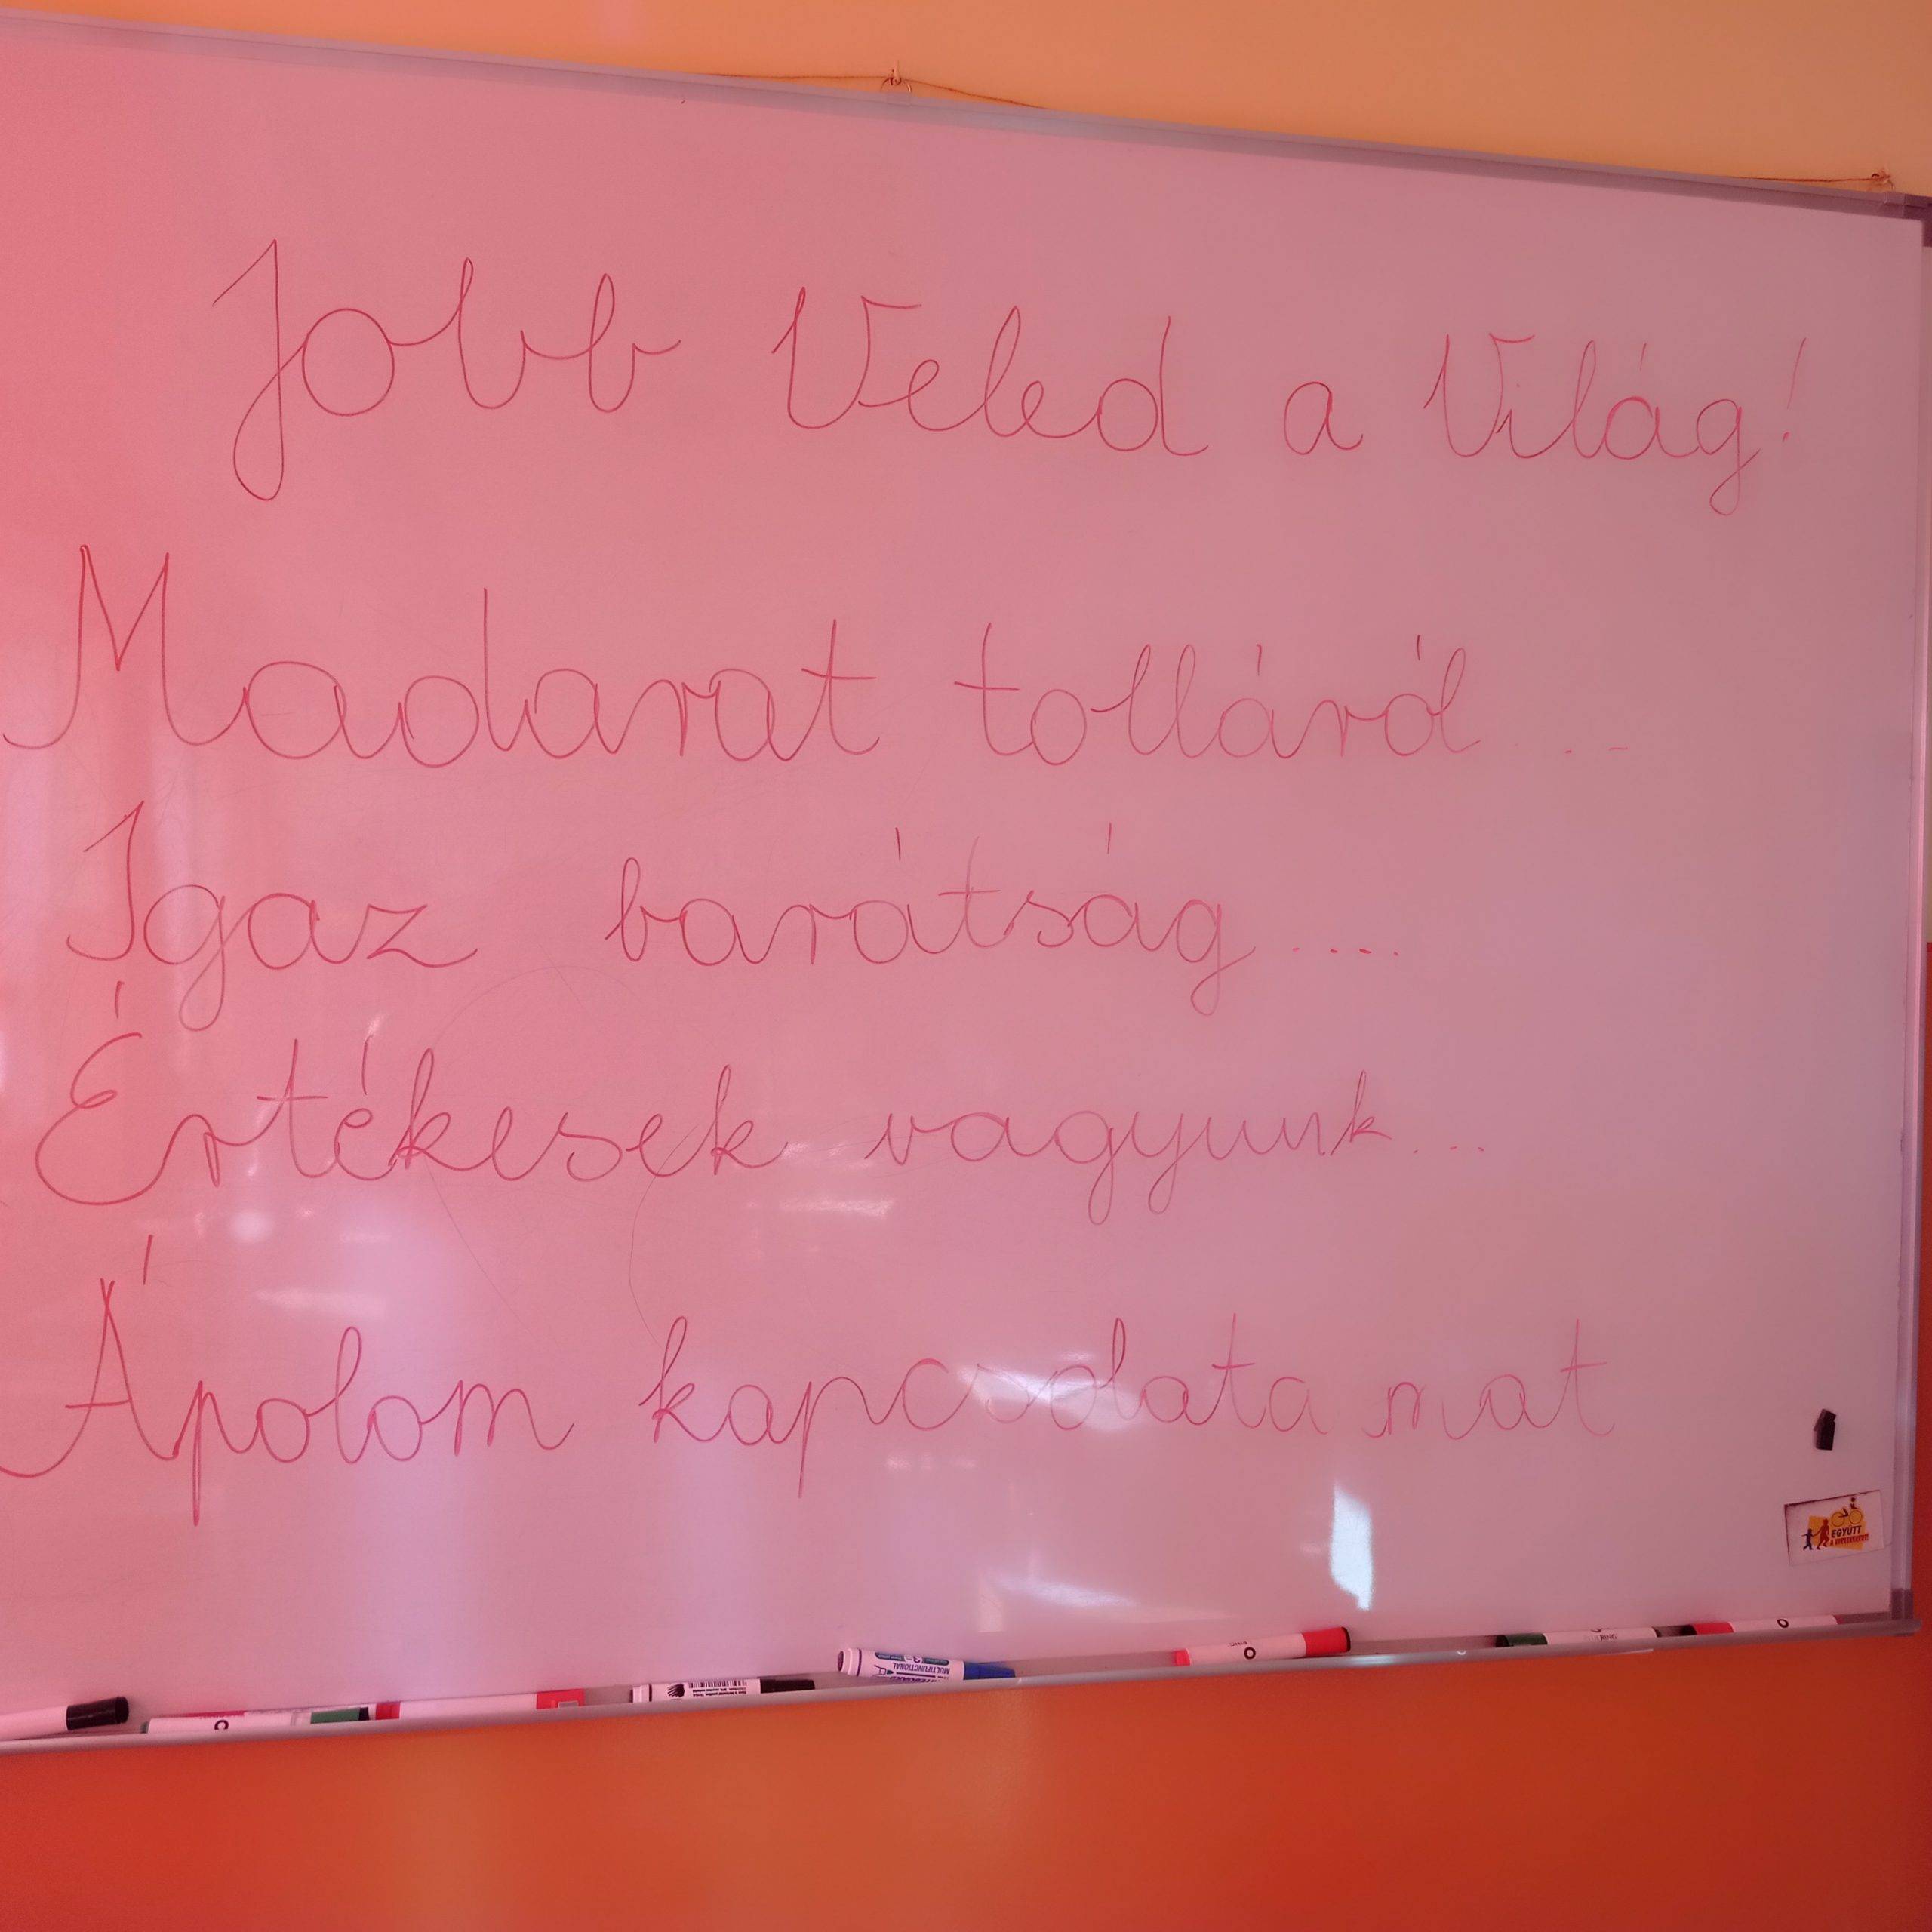 Jobb Veled a Világ!
Madarat tolláról ...
Igaz barátság ....
Értékesek vagyunk ...
Ápolom kapcsolata mat
EGYÜTT
MULTIFUNCTIONAL